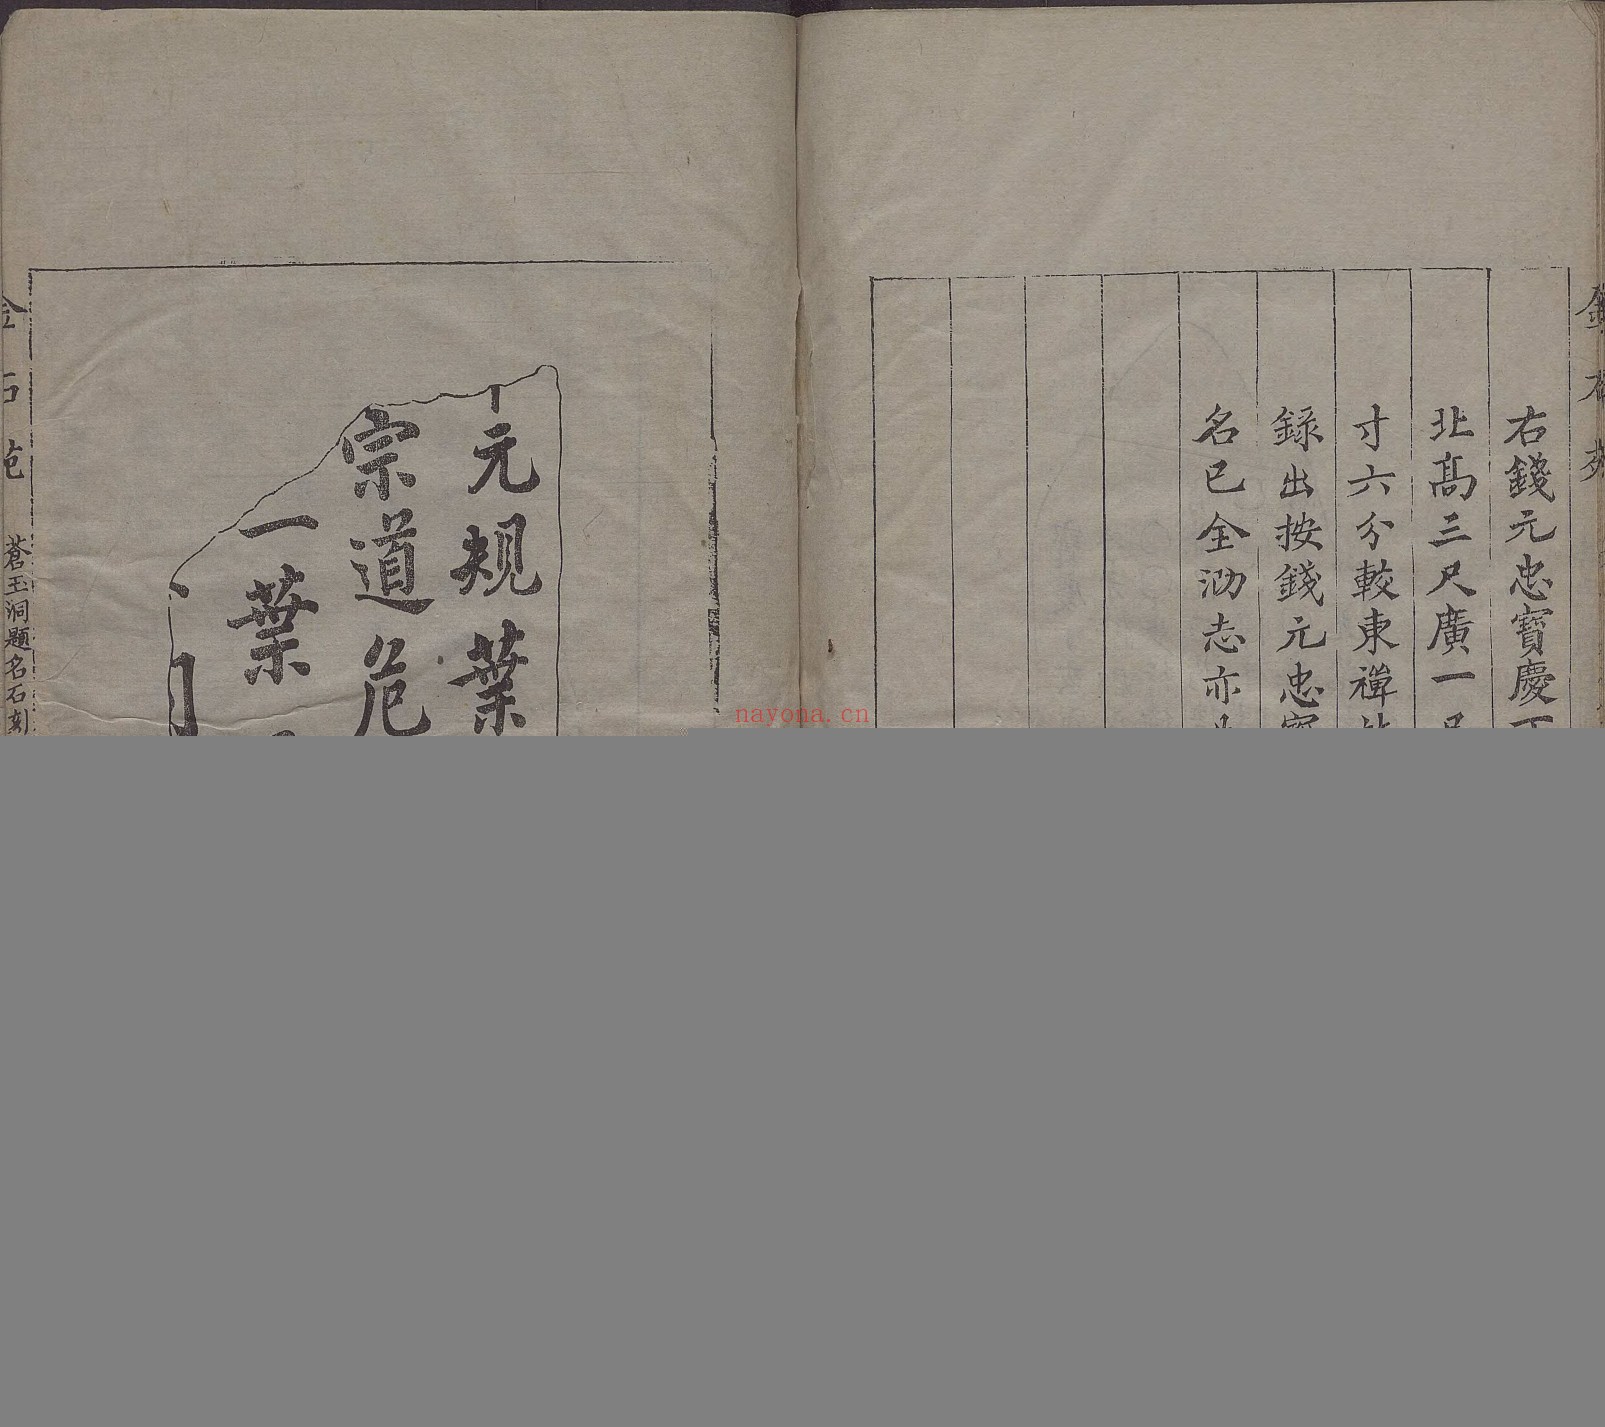 右錢元忠寶慶
北髙三尺廣一
寸六分較東禪
錄出按錢元忠
名已全泐志亦
元規葉
宗道危
一葉
金石苑
蒼玉洞題名石刻
nayona.cn